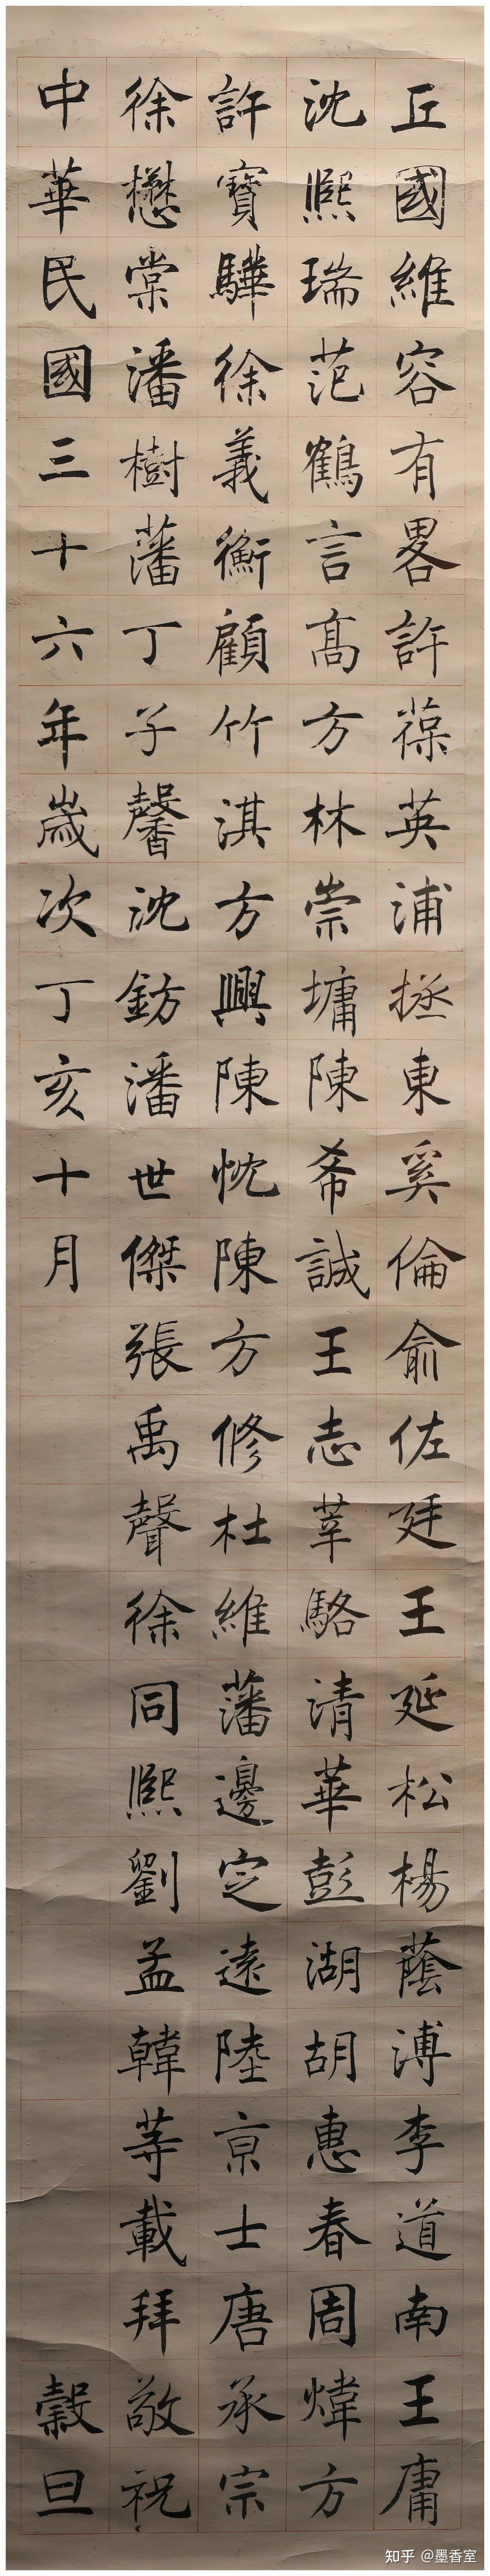 丘國維容有畧許葆英浦拯東奚倫俞佐廷王延松楊蔭溥李道南王庸
沈熙瑞范鶴言高方林崇墉陳希誠王志莘駱清華彭湖胡惠春周煒方
許寶驊徐義衡顧竹淇方興陳忱陳方修杜維藩邊定遠陸京士唐承宗
徐懋棠潘樹藩丁子馨沈鈁潘世傑張禹聲徐同熙劉孟韓等載拜敬祝
中華民國三十六年歲次丁亥十月 穀旦
知乎 @墨香室